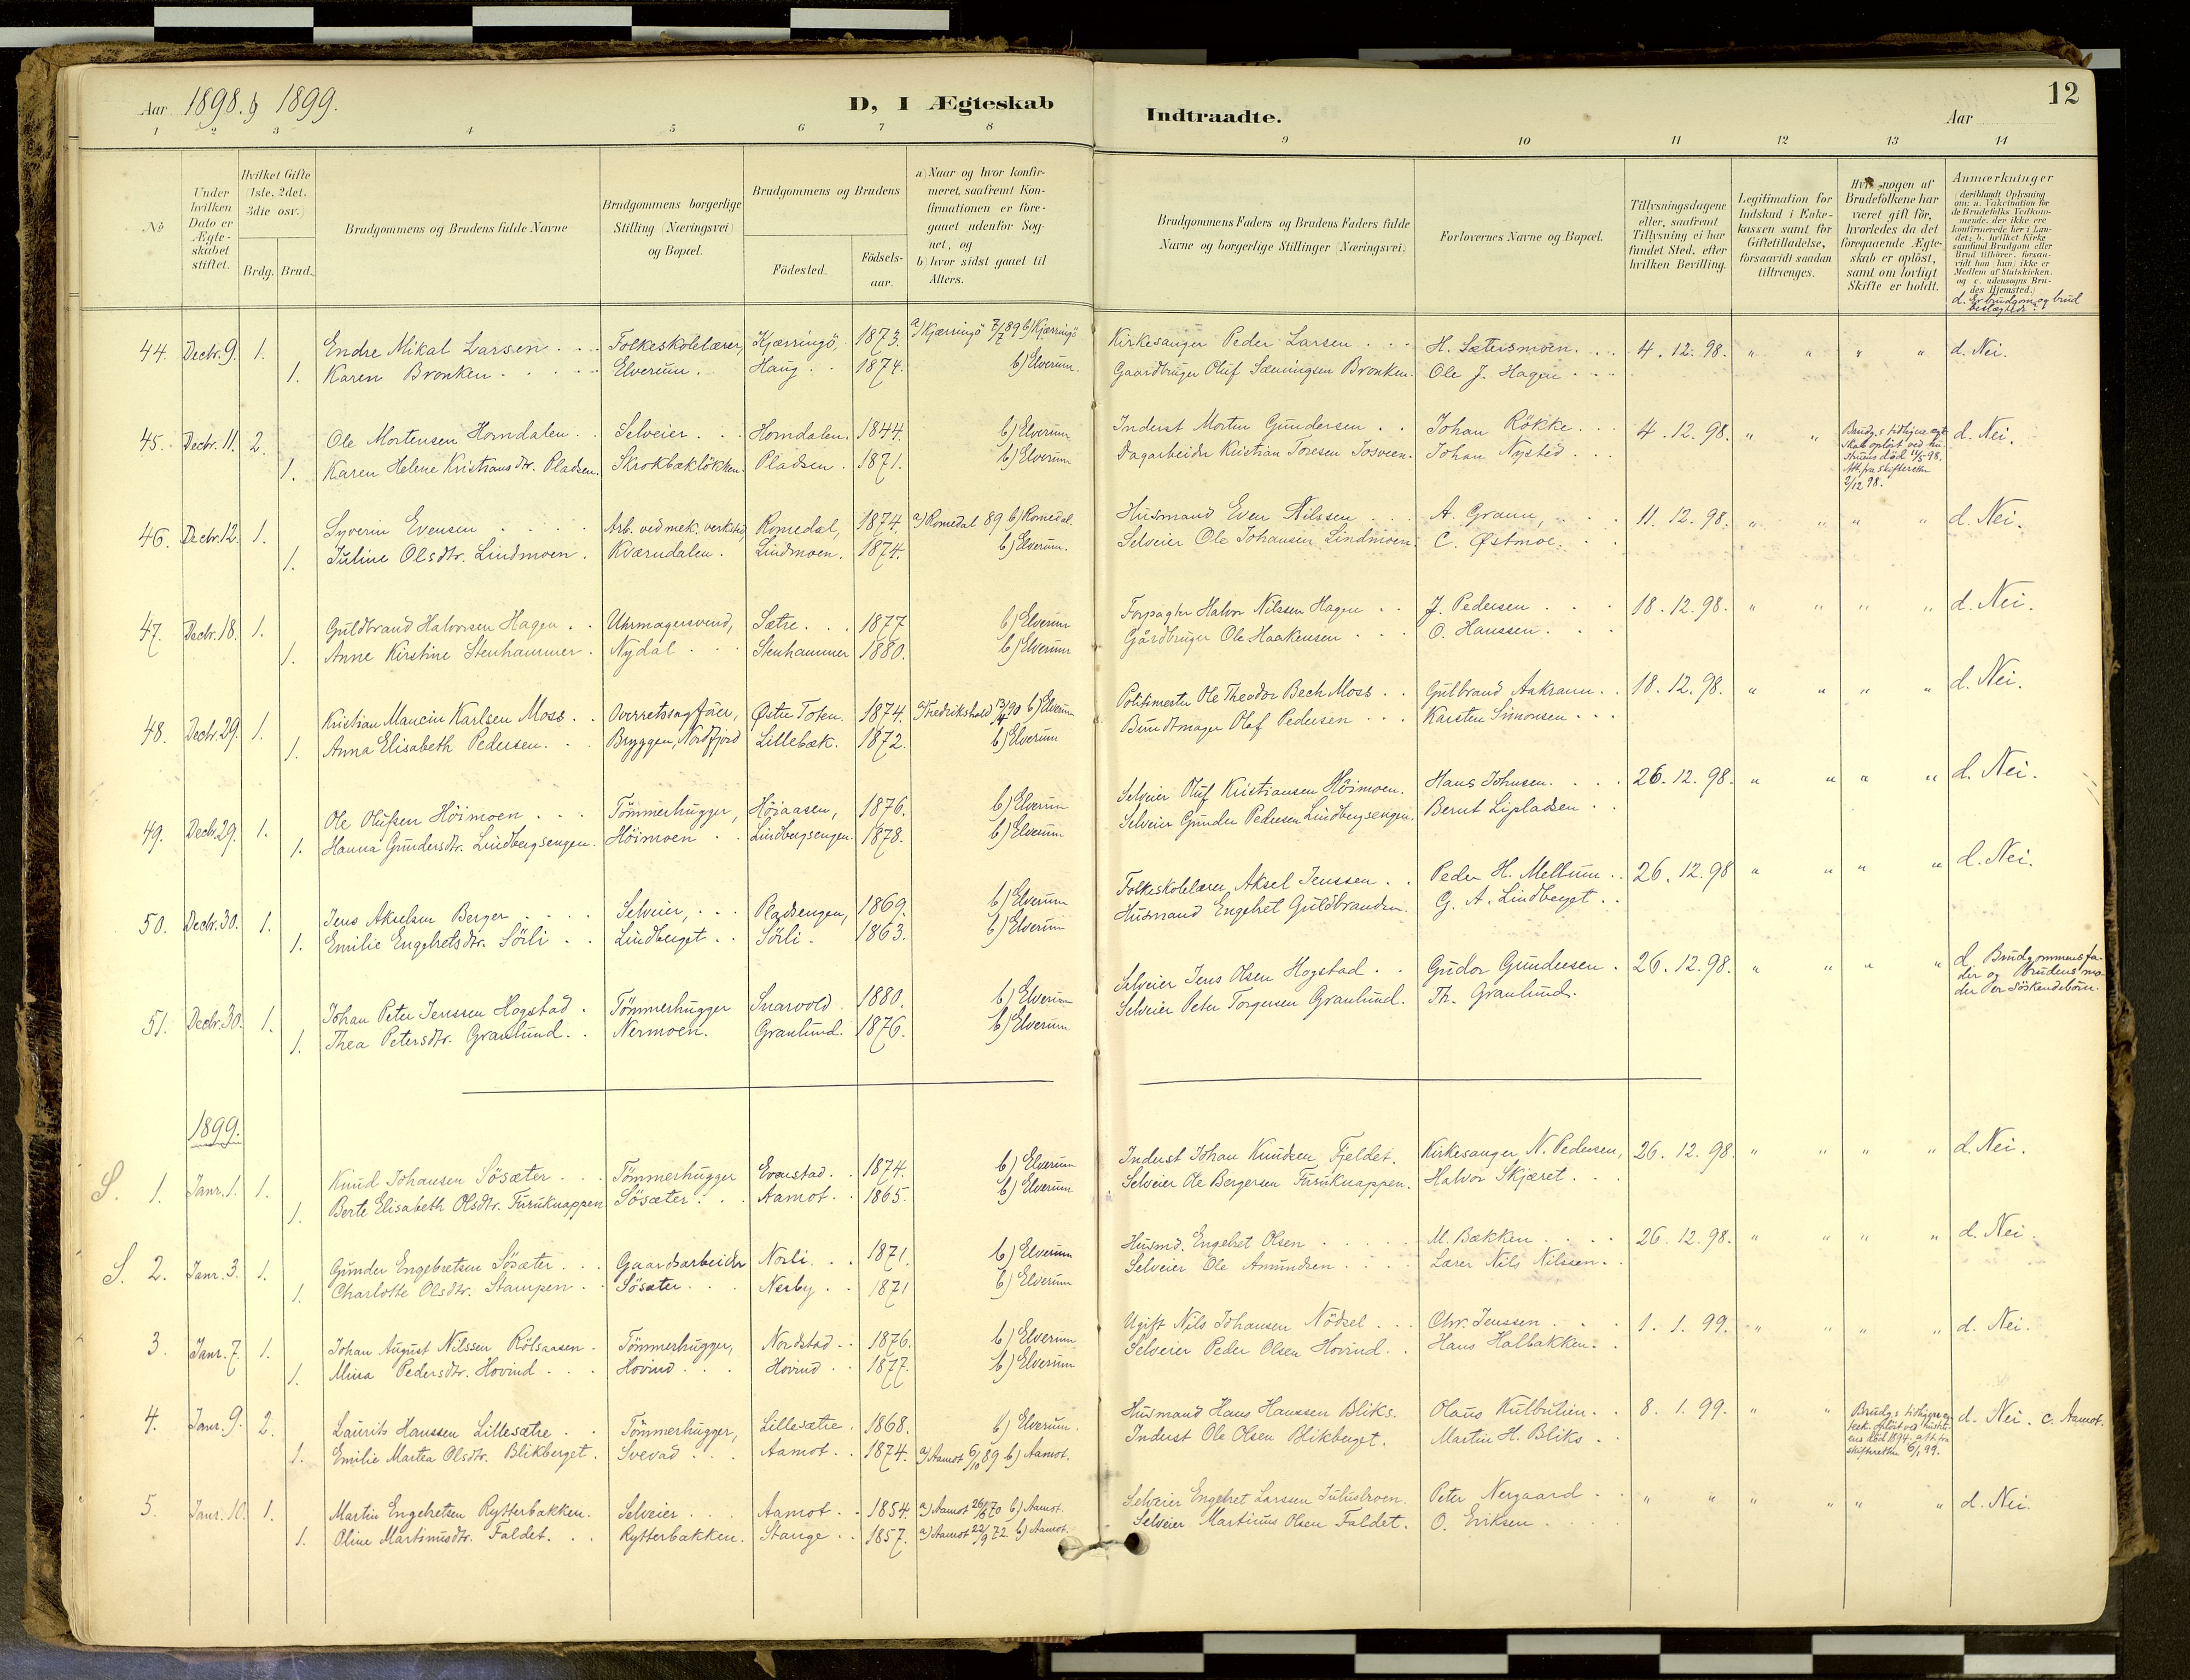 12
Aar 1898. & 1899.
D, I Ægteskab
Indtraadte.
Aar
1 2 3 4 5 6 7 8 9 10 11 12 13 14
No
Under hvilken Dato er Ægteskabet stiftet.
Hvilket Gifte (1ste, 2det, 3die osv.)
Brdg. Brud.
Brudgommens og Brudens fulde Navne
Brudgommens borgerlige Stilling (Næringsvei) og Bopæl.
Brudgommens og Brudens
Fødested.
Fødsels-aar.
a) Naar og hvor konfir-
meret, saafremt Kon-
firmationen er fore-
gaaet udenfor Sog-
net, og
b) hvor sidst gaaet til
Alters.
Brudgommens Faders og Brudens Faders fulde
Navne og borgerlige Stillinger (Næringsvei)
Forlovernes Navne og Bopæl.
Tillysningsdagene
eller, saafremt
Tillysning ei har
fundet Sted, efter
hvilken Bevilling.
Legitimation for
Indskud i Enke-
kassen samt for
Giftetilladelse,
forsaavidt saadan
tiltrænges.
Hvis nogen af
Brudefolkene har
været gift før,
hvorledes da det
foregaaende Ægte-
skab er opløst,
samt om lovligt
Skifte er holdt.
Anmærkninger
(deriblandt Oplysning
om: a. Vakcination for
de Brudefolks Vedkom-
mende, der ikke ere
konfirmerede her i Lan-
det; b. hvilket Kirke-
samfund Brudgom eller
Brud tilhører, forsaa-
vidt han (hun) ikke er
Medlem af Statskirken,
og c. udensogns Bru-
des Hjemsted.)
d. Er brudgom og brud
beslægtede?
44. Decbr. 9. 1. Endre Mikal Larsen Folkeskolelærer, Kjærringö, 1873. a) Kjærringö 7/7 89 b) Kjærringö Kirkesanger Peder Larsen H. Sætersmoen. 4. 12. 98. " " " " d. Nei.
1. Karen Bronken Elverum. Haug 1874. b) Elverum. Gaardbruger Oluf Sæmingsen Bronken. Ole J. Hagen
45. Decbr. 11. 2. Ole Mortensen Horndalen Selveier Horndalen. 1844. b) Elverum Inderst Morten Gundersen Johan Rökke 4. 12. 98. " " d. Nei.
1. Karen Helene Kristiansdtr. Pladsen. Skrokbæklökken. Pladsen 1871. b) Elverum Dagarbeider Kristian Toresen Josveen. Johan Nysted
Brudg.s tidligere ægt.
skab oplöst ved hu-
struens död 11/5 98.
Att. fra skifteretten
2/12 98.
46. Decbr. 12. 1. Syverin Evensen Arb. ved mek. verksted, Romedal, 1874 a) Romedal 89 b) Romedal. Husmand Even Nilssen A. Graum, 11. 12. 98. " " " " d. Nei.
1. Juline Olsdtr. Lindmoen. Kværndalen. Lindmoen. 1874. b) Elverum. Selveier Ole Johansen Lindmoen. C. Østmoe.
47. Decbr. 18. 1. Guldbrand Halvorsen Hagen Uhrmagersvend, Sætre 1877 b) Elverum Forpagter Halvor Nilssen Hagen J. Pedersen 18. 12. 98. " " " " d. Nei.
1. Anne Kirstine Stenhammer Nydal Stenhammer 1880. b) Elverum Gårdbruger Ole Haakensen O. Hanssen.
48. Decbr. 29. 1. Kristian Mancin Karlsen Moss Overretssagförer, Østre Toten. 1874. a) Fredrikshald 13/4 90 b) Elverum Politimester Ole Theodor Bech Moss Gulbrand Aakrann 18. 12. 98. " " " " d. Nei.
1. Anna Elisabeth Pedersen. Bryggen, Nordfjord Lillebæk. 1872. b) Elverum Bundtmager Olaf Pedersen Karsten Simonsen
49. Decbr. 29. 1. Ole Olufsen Höimoen Tömmerhugger, Höiaasen, 1876. b) Elverum Selveier Oluf Kristiansen Höimoen. Hans Johnsen. 26. 12. 98. " " " " d. Nei.
1. Hanna Gundersdtr. Lindbergsengen. Höimoen Lindbergsengen. 1878. b) Elverum Selveier Gunder Pedersen Lindbergsengen. Bernt Lipladsen
50. Decbr. 30. 1. Jens Akselsen Berger Selveier, Pladsengen, 1869. b) Elverum Folkeskolelærer Aksel Jenssen Peder H. Mellum 26. 12. 98 " " " " d. Nei.
1. Emilie Engebretsdtr. Sörli Lindberget Sörli. 1863. b) Elverum Husmand Engebret Guldbrandsen. G. A. Lindberget
51. Decbr. 30. 1. Johan Peter Jenssen Hogstad Tömmerhugger Snarvold 1880. b) Elverum Selveier Jens Olsen Hogstad Gudor Gundersen 26. 12. 98. " " " "
1. Thea Petersdtr. Granlund Nermoen. Granlund. 1876. b) Elverum Selveier Peter Torgersen Granlund. Th. Granlund.
d Brudgommens fa-
der og Brudens mo-
der er söskendebörn.
1899.
S. 1. Janr. 1. 1. Knud Johansen Sösæter Tömmerhugger Evenstad 1874. b) Elverum Inderst Johan Knudsen Fjeldet. Kirkesanger N. Pedersen, 26. 12. 98. " " " " d. Nei.
1. Berte Elisabeth Olsdtr. Furuknappen Sösæter Aamot 1865. b) Elverum Selveier Ole Bergersen Furuknappen. Halvor Skjæret
S. 2. Janr. 3. 1. Gunder Engebretsen Sösæter Gaardsarbeider Norli 1871. b) Elverum Husmd. Engebret Olsen M. Bækken 26. 12. 98. " " " " d. Nei.
1. Charlotte Olsdtr. Stampen Sösæter Nesby 1871 b) Elverum Selveier Ole Amundsen Lærer Nils Nilssen.
3. Janr. 7. 1. Johan August Nilssen Rölsaasen Tömmerhugger, Nordstad 1876. b) Elverum Ugift Nils Johansen Nödsel Chr. Jenssen 1. 1. 99. " " " " d. Nei.
1. Mina Pedersdtr. Hovind Hovind Hovind 1877. b) Elverum Selveier Peder Olsen Hovind. Hans Halbakken.
4. Janr. 9. 2. Laurits Hanssen Lillesætre Tömmerhugger, Lillesætre. 1868. b) Elverum. Husmand Hans Hanssen Bliks. Olaus Kulbulien. 8. 1. 99. " " d. Nei. c. Aamot.
1. Emilie Martea Olsdtr. Blikberget. Svevad Aamot 1874. a) Aamot 6/10 89 b) Aamot. Inderst Ole Olsen Blikberget. Martin H. Bliks
Brudg.s tidligere æg-
tesk. oplöst ved
död 1894. att. fra
skifteretten 6/1 99.
5. Janr. 10. 1. Martin Engebretsen Rytterbakken. Selveier Aamot 1854. a) Aamot 26/6 70 b) Aamot. Selveier Engebret Larssen Julusbroen. Peter Nergaard " " " " " " d. Nei.
1. Oline Martinusdtr. Faldet. Rytterbakken. Stange 1857. a) Aamot 22/9 72. b) Aamot. Selveier Martinus Olsen Faldet. O. Eriksen